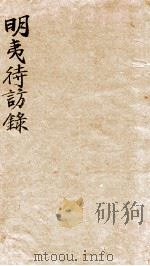 明夷待訪錄
研狗
mtoou.info